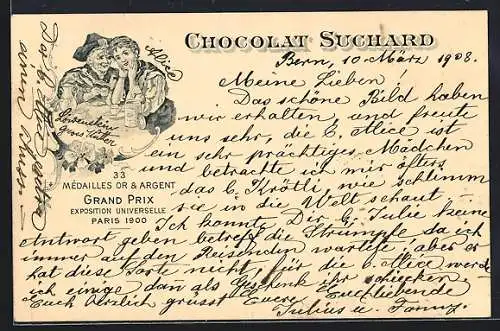 CHOCOLAT SUCHARD
Bern, 10 März 1908.
Meine Lieben!
Das schöne Bild haben
wir erhalten, und freute
uns sehr, die C. Alice ist
ein sehr prächtiges Mädchen
und betrachte ich mir öfters
das C. Krötli, wie schlimm
sie in die Welt schaut
Ich konnte Dir G. Julie keine
Antwort geben betreff die Strümpfe da ich
immer auf den Reisenden wartete, aber er
hat diese Sorte nicht, für die C. Alice werde
ich einige dan als Geschenk Ihr schicken
Euch herzlich grüsst Euere Euchliebende
Julius u. Fanny.
Alice
gross
33
MÉDAILLES OR & ARGENT
GRAND PRIX
EXPOSITION UNIVERSELLE
PARIS 1900
Der C. Alice
einen Kuss.